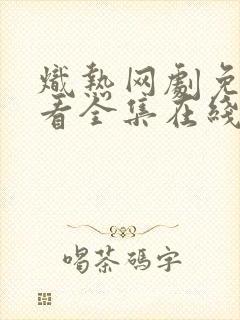 熾熱网劇免
看全集在綫
喝茶碼字